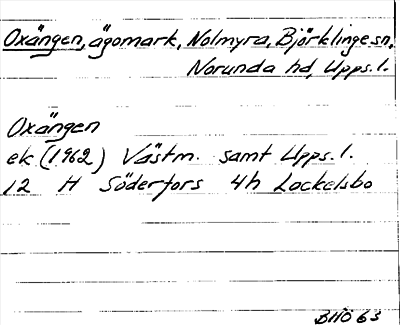 Oxängen, ägomark, Nolmyra, Björklinge sn,
Norunda hd, Upps. l.
Oxängen
ek (1962) Västm. samt Upps. l.
12 H Söderfors 4h Lockelsbo
BHÖ 63